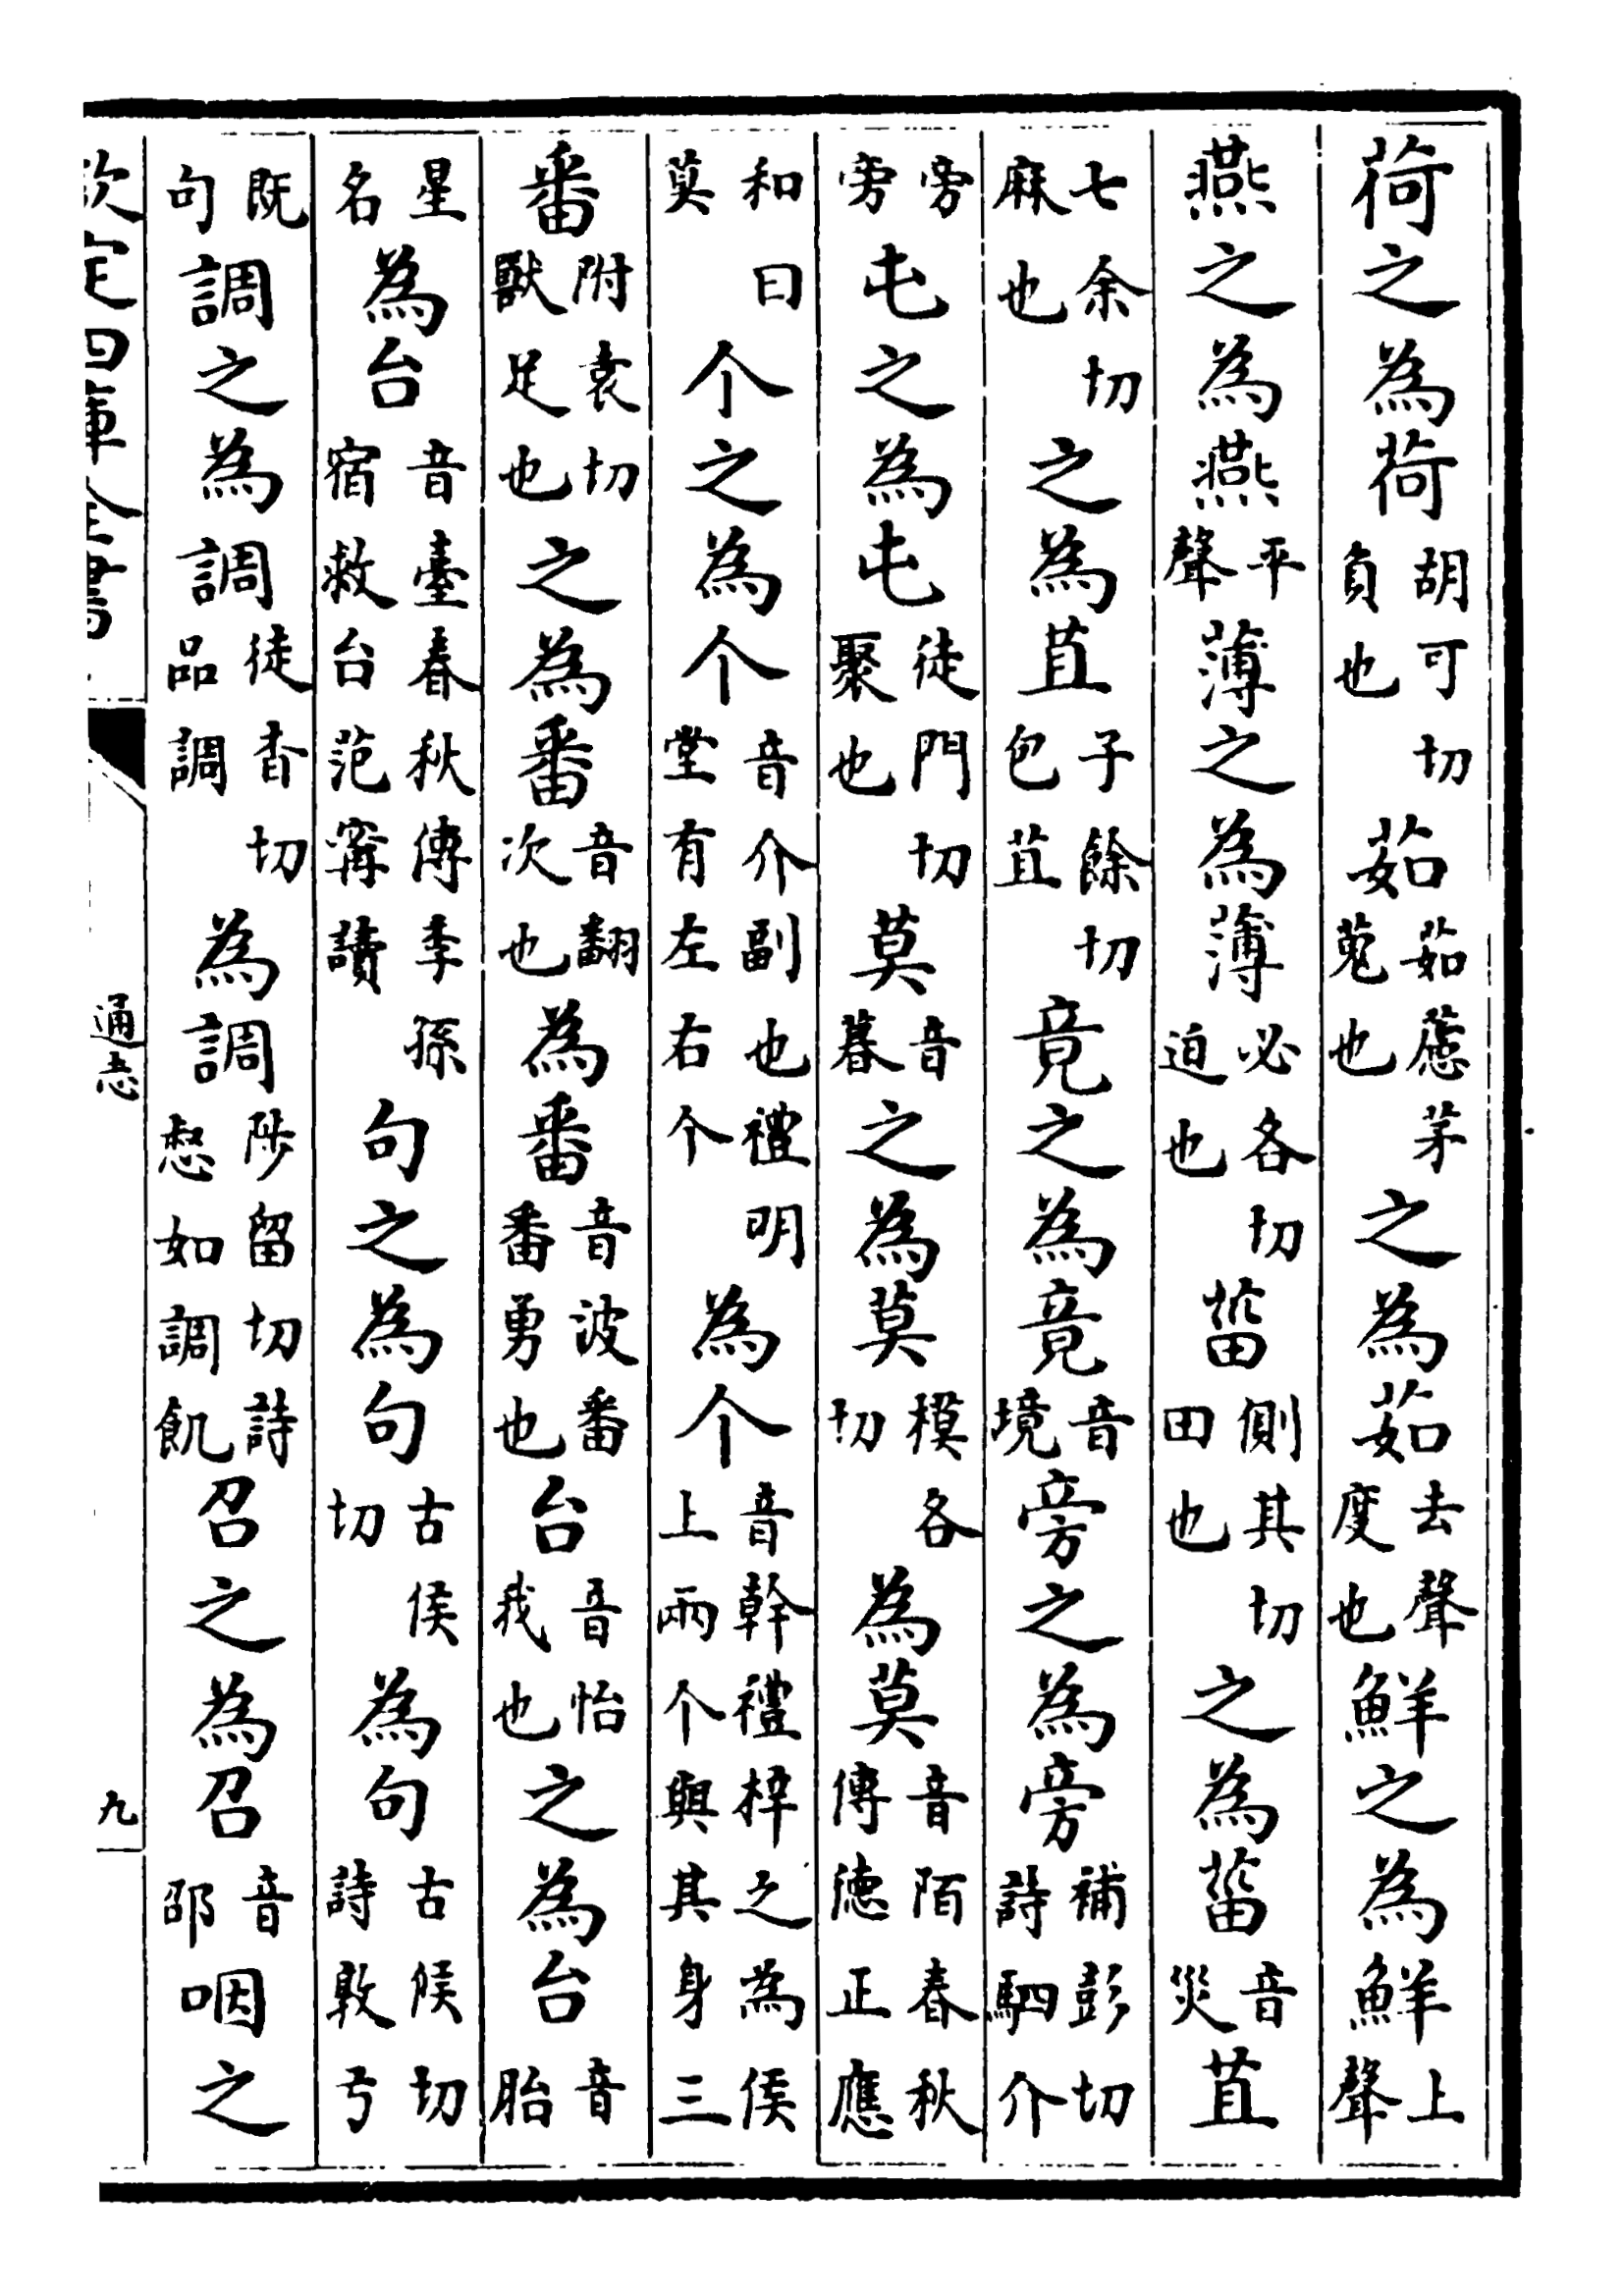 荷之為荷胡可切負也茹茹藘茅蒐也之為茹去聲度也鮮之為鮮上聲
燕之為燕平聲薄之為薄必各切迫也菑側其切田也之為菑音災苴
七余切麻也之為苴子餘切包苴竟之為竟音境旁之為旁補彭切詩駟介
旁旁屯之為屯徒門切聚也莫音暮之為莫模各切為莫音陌春秋傳德正應
和曰莫个之為个音介副也禮明堂有左右个為个音幹禮梓之為侯上兩个與其身三
番附袁切獸足也之為番音翻次也為番音波番番勇也台音怡我也之為台音胎
星名為台音臺春秋傳季孫宿救台范甯讀句之為句古侯切為句古候切詩敦弓
既句調之為調徒杳切品調為調陟留切詩惄如調飢召之為召音邵咽之
欽定四庫全書
通志
九